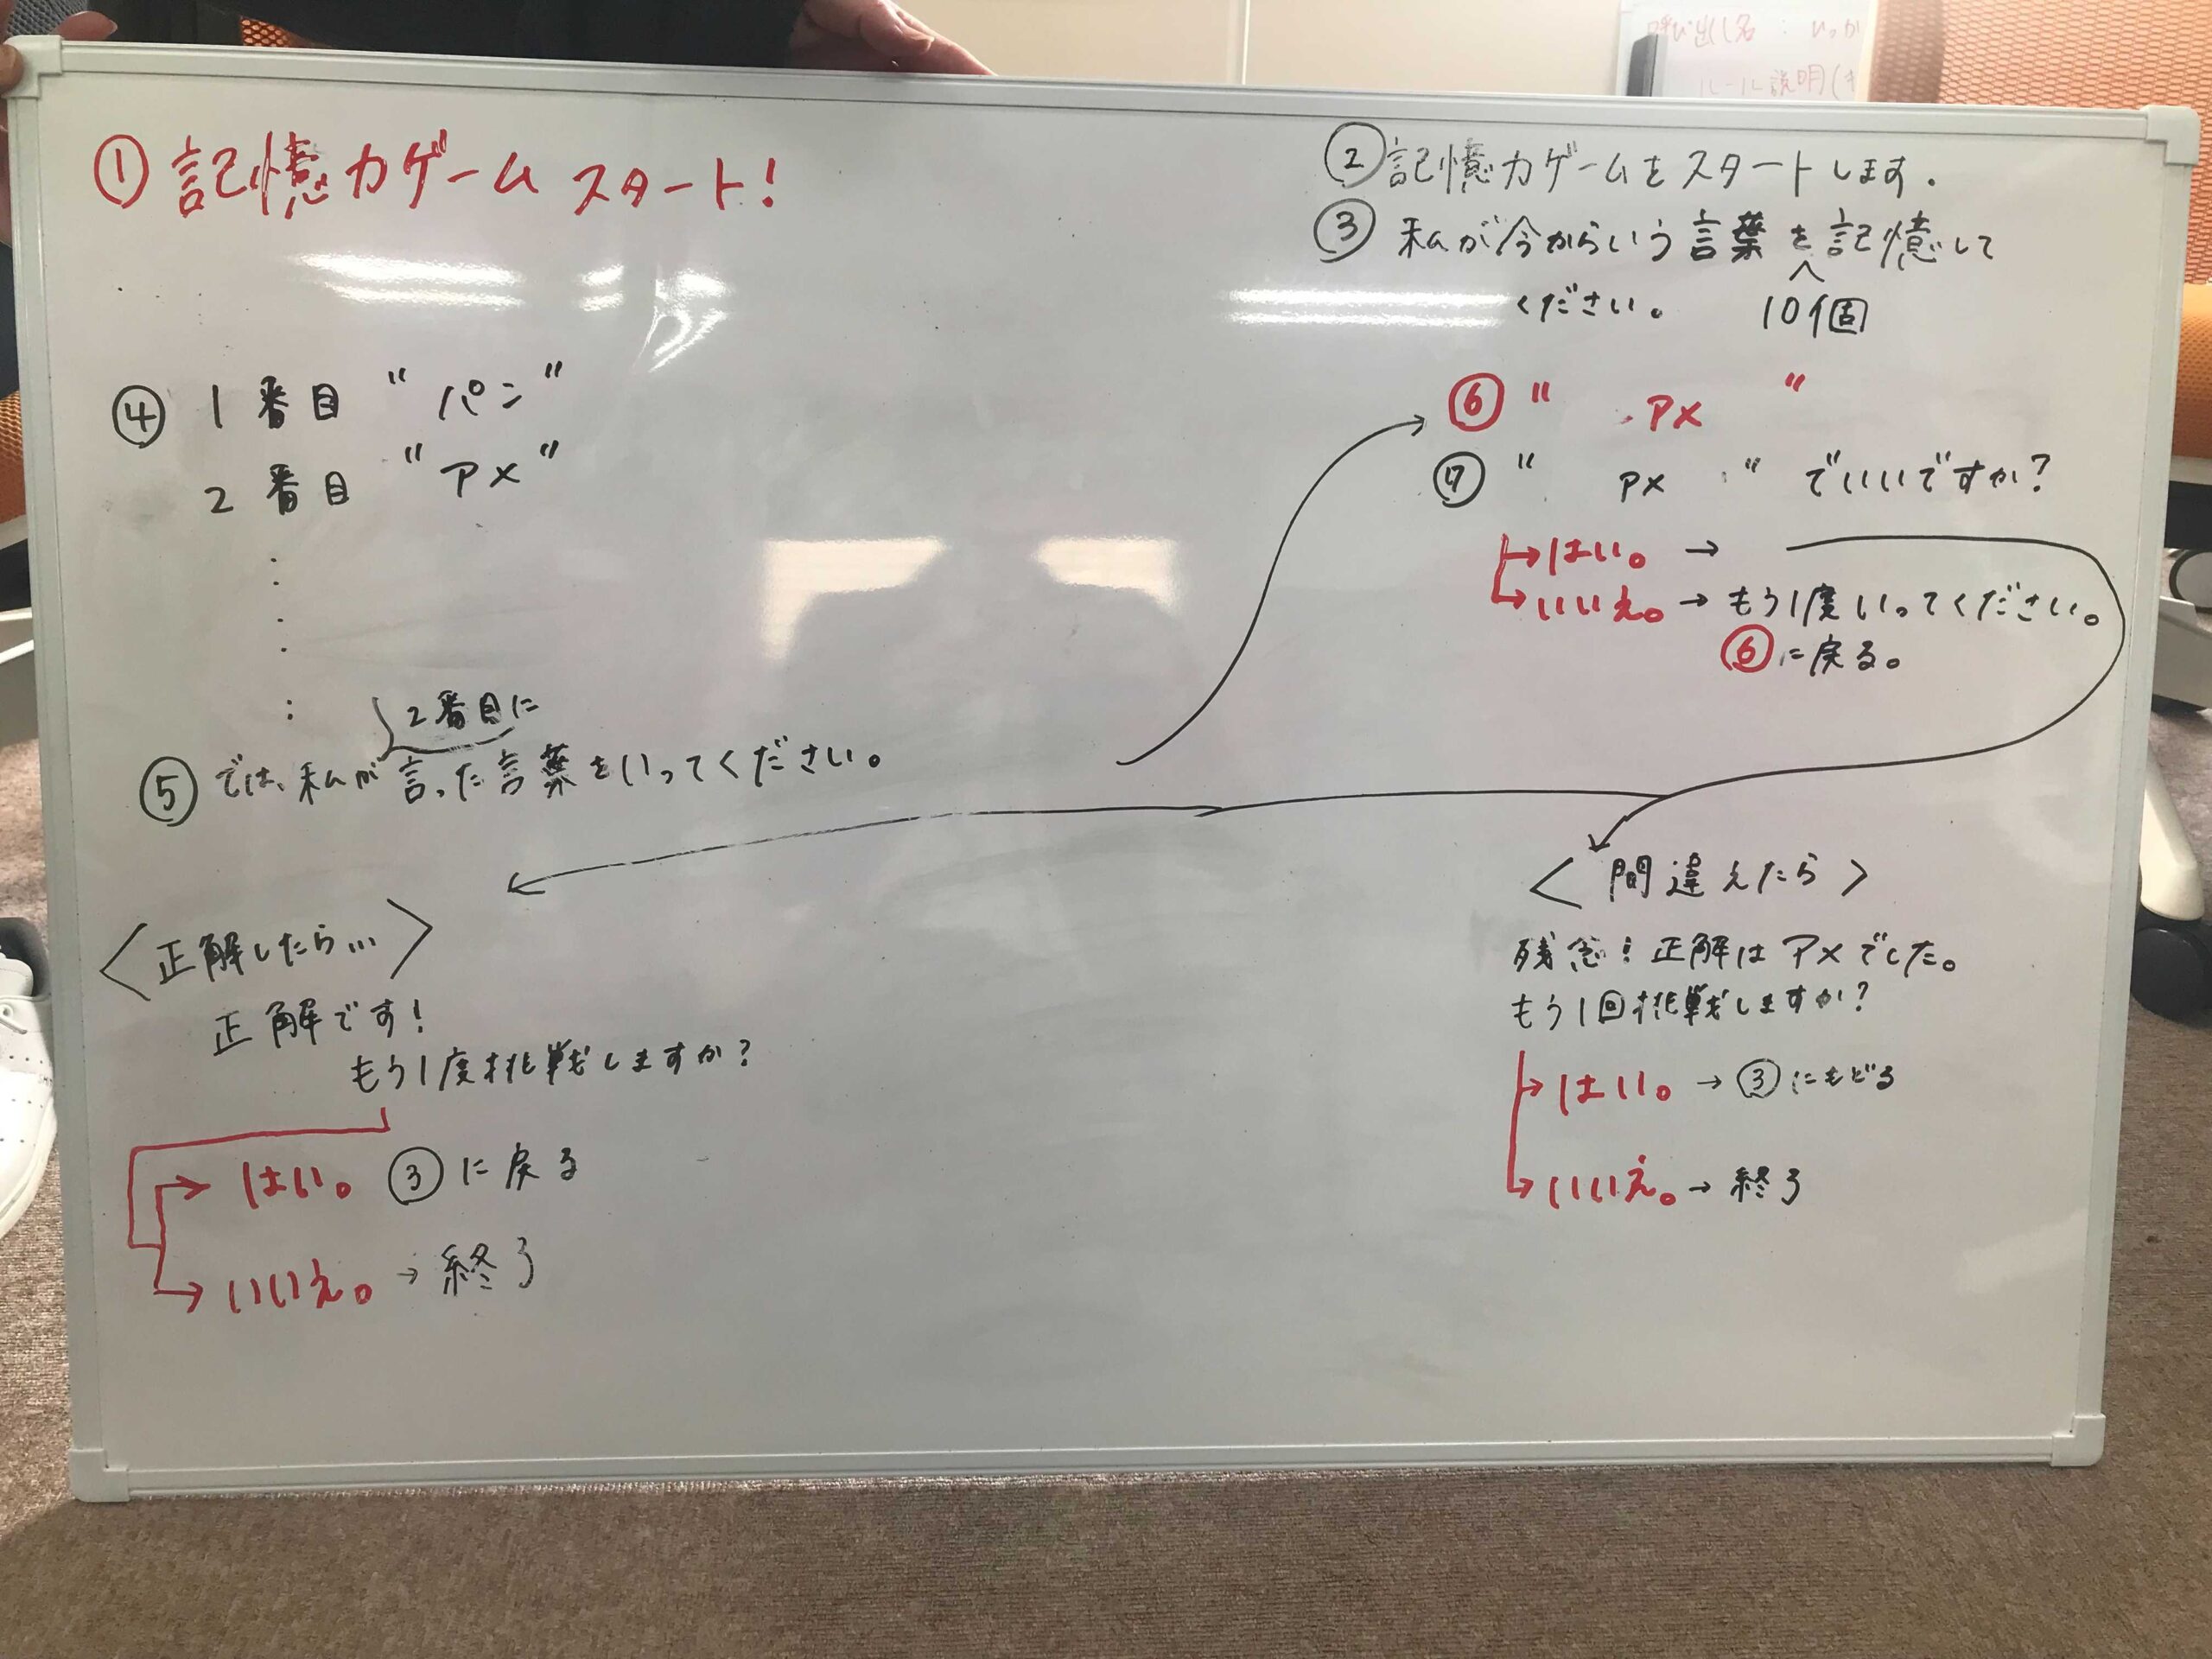 ① 記憶力ゲーム スタート!
② 記憶力ゲームをスタートします.
③ 私が今からいう言葉を記憶して
ください。 10個
④ 1番目 "パン"
2番目 "アメ"
⑤ では、私が言った言葉をいってください。
2番目に
⑥ " アメ "
⑦ " アメ " でいいですか?
はい。→
いいえ。→ もう1度いってください。
⑥に戻る。
<正解したら...>
正解です!
もう1度挑戦しますか?
はい。 ③に戻る
いいえ。→ 終了
<間違えたら>
残念! 正解はアメでした。
もう1回挑戦しますか?
はい。→ ③にもどる
いいえ。→ 終了
呼び出し名:
ルール説明(